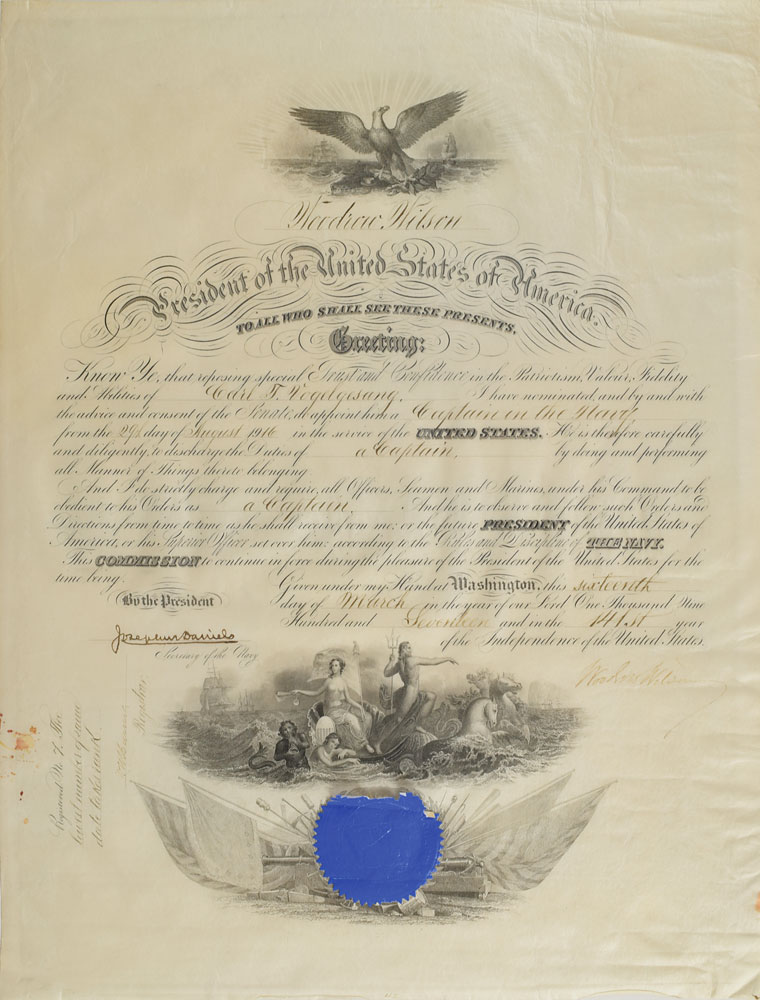 Woodrow Wilson
President of the United States of America.
TO ALL WHO SHALL SEE THESE PRESENTS,
Greeting:
Know Ye, that reposing special Trust and Confidence in the Patriotism, Valour, Fidelity
and Abilities of Carl T. Vogelgesang, I have nominated, and by and with
the advice and consent of the Senate, do appoint him a Captain in the Navy
from the 29th day of August 1916 in the service of the UNITED STATES. He is therefore carefully
and diligently to discharge the Duties of a Captain, by doing and performing
all Manner of Things thereto belonging.
And I do strictly charge and require, all Officers, Seamen and Marines, under his Command to be
obedient to his Orders as a Captain. And he is to observe and follow such Orders and
Directions from time to time as he shall receive from me, or the future PRESIDENT of the United States of
America, or his Superior Officer set over him, according to the Rules and Discipline of THE NAVY.
This COMMISSION to continue in force during the pleasure of the President of the United States for the
time being.
Given under my Hand at Washington, this sixteenth
By the President
day of March in the year of our Lord One Thousand Nine
Hundred and Seventeen and in the 141st year
Josephus Daniels
of the Independence of the United States.
Secretary of the Navy
Woodrow Wilson
Registered No. 7. The
Register.
date takes rank